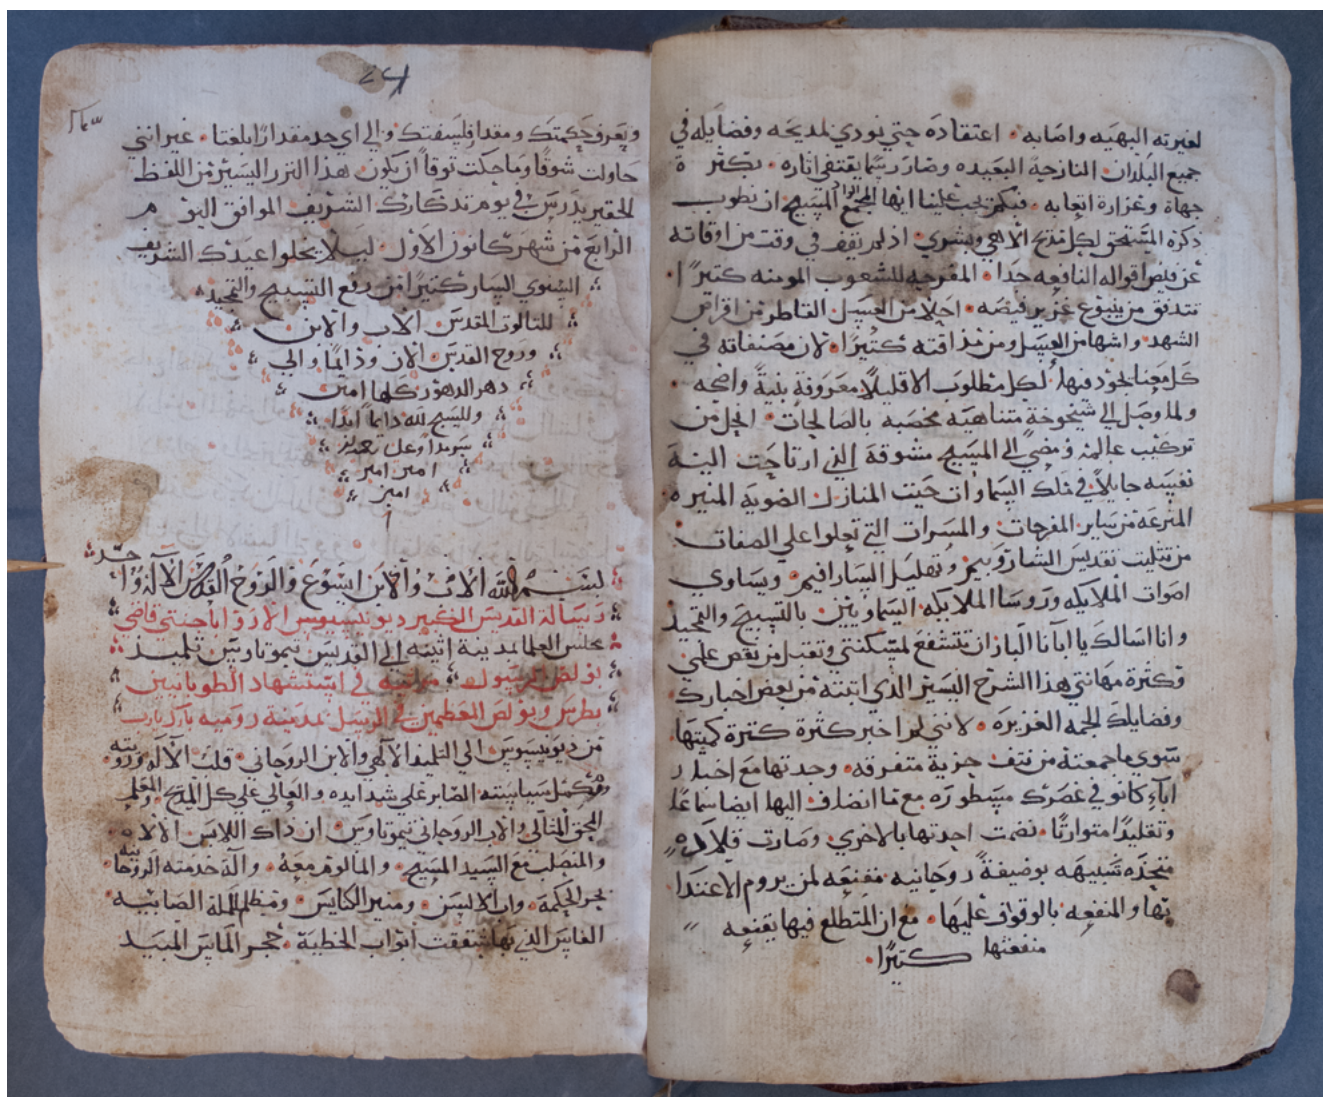 لغيرته البهيه واصابه اعتقاده حتي نودي لمديحه وفضايله في
جميع البلدان النازحة البعيده وصار رسما يقتفي اثاره بكثرة
جهاة وغزارة اتعابه فيجب علينا ايها المجمع المسيح ان نطوب
ذكره المستحق لكل مديح الاهي وبشري اذ لم يقف في وقت من اوقاته
عن فيض اقواله النافعه جدا المفرحه للشعوب المومنه كتيرا
تتدفق من ينبوع غزير فيضه احلا من العسل القاطر من اقراص
الشهد واشها من العسل ومن مذاقته كتيرا لان مصنفاته في
كل معنا يجود فيها لكل مطلوب الا قليلا معروفة بنية واضحه
ولما وصل الي شيخوخة متناهيه مخصبه بالصالحات انحل من
تركيب عالمنا ومضي الي المسيح مشوقة الذي ارتاحت اليه
نفسه جايلا في فلك السماوات حيت المنازل الضويه المنيره
المترعه من ساير المفرحات والمسرات التي تعلوا علي الصفات
من تتليت تقديس الشاروبيم وتهليل السارافيم ويساوي
اصوات الملايكه وروسا الملايكه السماويين بالتسبيح والتمجيد
وانا اسالك يا ابانا البار ان تتشفع لمسكنتي وتقبل من نقص علمي
وكثرة مهانتي هذا الشرح اليسير الذي اتيته من بعض اخبارك
وفضايلك الجمه الغزيره لانني لم اخبر كثرة كترة كميتها
سوي ما جمعته من نتف جزية متفرقه وحدتها مع اخبار
اباء كانو في عصرك مسطوره مع ما انضاف اليها ايضا سماعا
وتقليدا متواترتا نضمت احدتها بالاخري وصارت قلاده
متحده شبيهه بوضيفة روحانيه مقنعه لمن يروم الاعتدا
بها والمنفعه بالوقوف عليها مع ان المتطلع فيها يقنعه
منفعتها كتيرا
ويعرف حكمتك ومقدار فلسفتك والي اي حد مقدارا بلغتا غير انني
حاولت شوقا وماحكت توقا ان يكون هذا النزر اليسير من اللفظ
الحقير يدرس في يوم تدكارك الشريف الموافق اليوم
الرابع من شهر كانون الاول ليلا يخلوا عيدك الشريف
السنوي السار كتيرا من رفع التسبيح والتمجيد
للتالوت المقدس الاب والابن
وروح القدس الان ودايما والي
دهر الدهور كلها امين
والمسبح لله دايما ابدا
سرمدا وعلي
امين امين
امين
بسم الله الاب والابن ايسوع والروح القدس الاله واحد
رسالة القديس الكبير ديونيسيوس الاريوباجيتي قاضي
مجلس العلما لمدينة اتينه الي القديس تيموتاوس تلميد
بولص الرسول في استشهاد الطوبانيين
بطرس وبولص العظمين في الرسل بمدينة روميه بارك يارب
من ديونيسيوس الي التلميد الالاهي والابن الروحاني قلب الاله ورويته
ومكمل سياسته الصابر علي شدايده والعالي علي كل المديح والمعلم
المحق المتالي والاب الروحاني تيموتاوس ان داك اللابس الالاه
والمتصلب مع السيد المسيح والمالوف معه والد خدمته الروحانيه
بحر الحكمة وان الالسن ومنير الكنايس ومظلل الملة الصابيه
الفاس الذي بها شققت ابواب الخطية حجر الماس المبيد